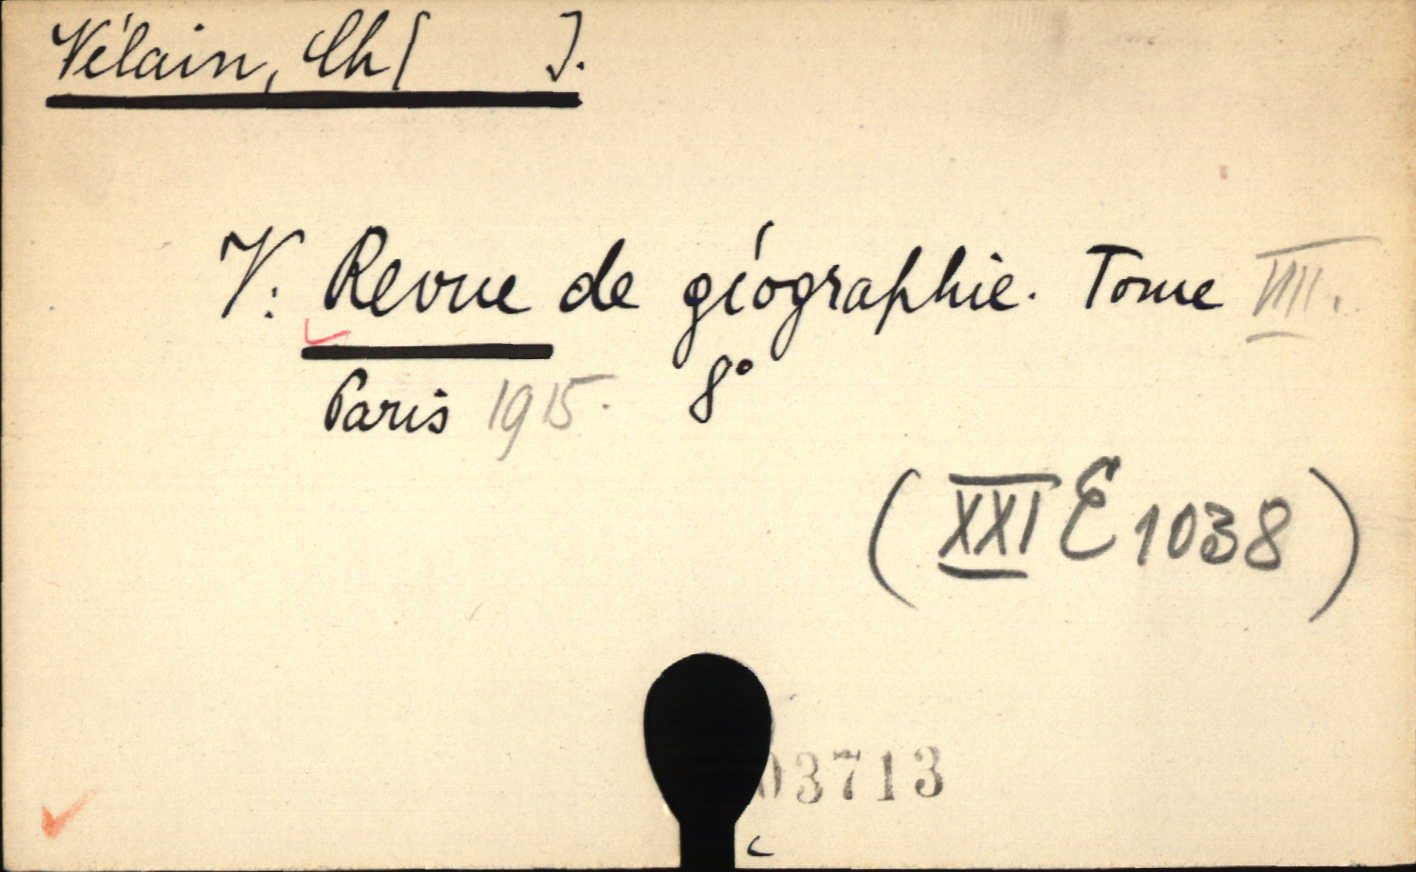 Vélain, Ch[ ].
V: Revue de géographie. Tome VIII.
Paris 1915. 8°
(XXI E 1038)
03713